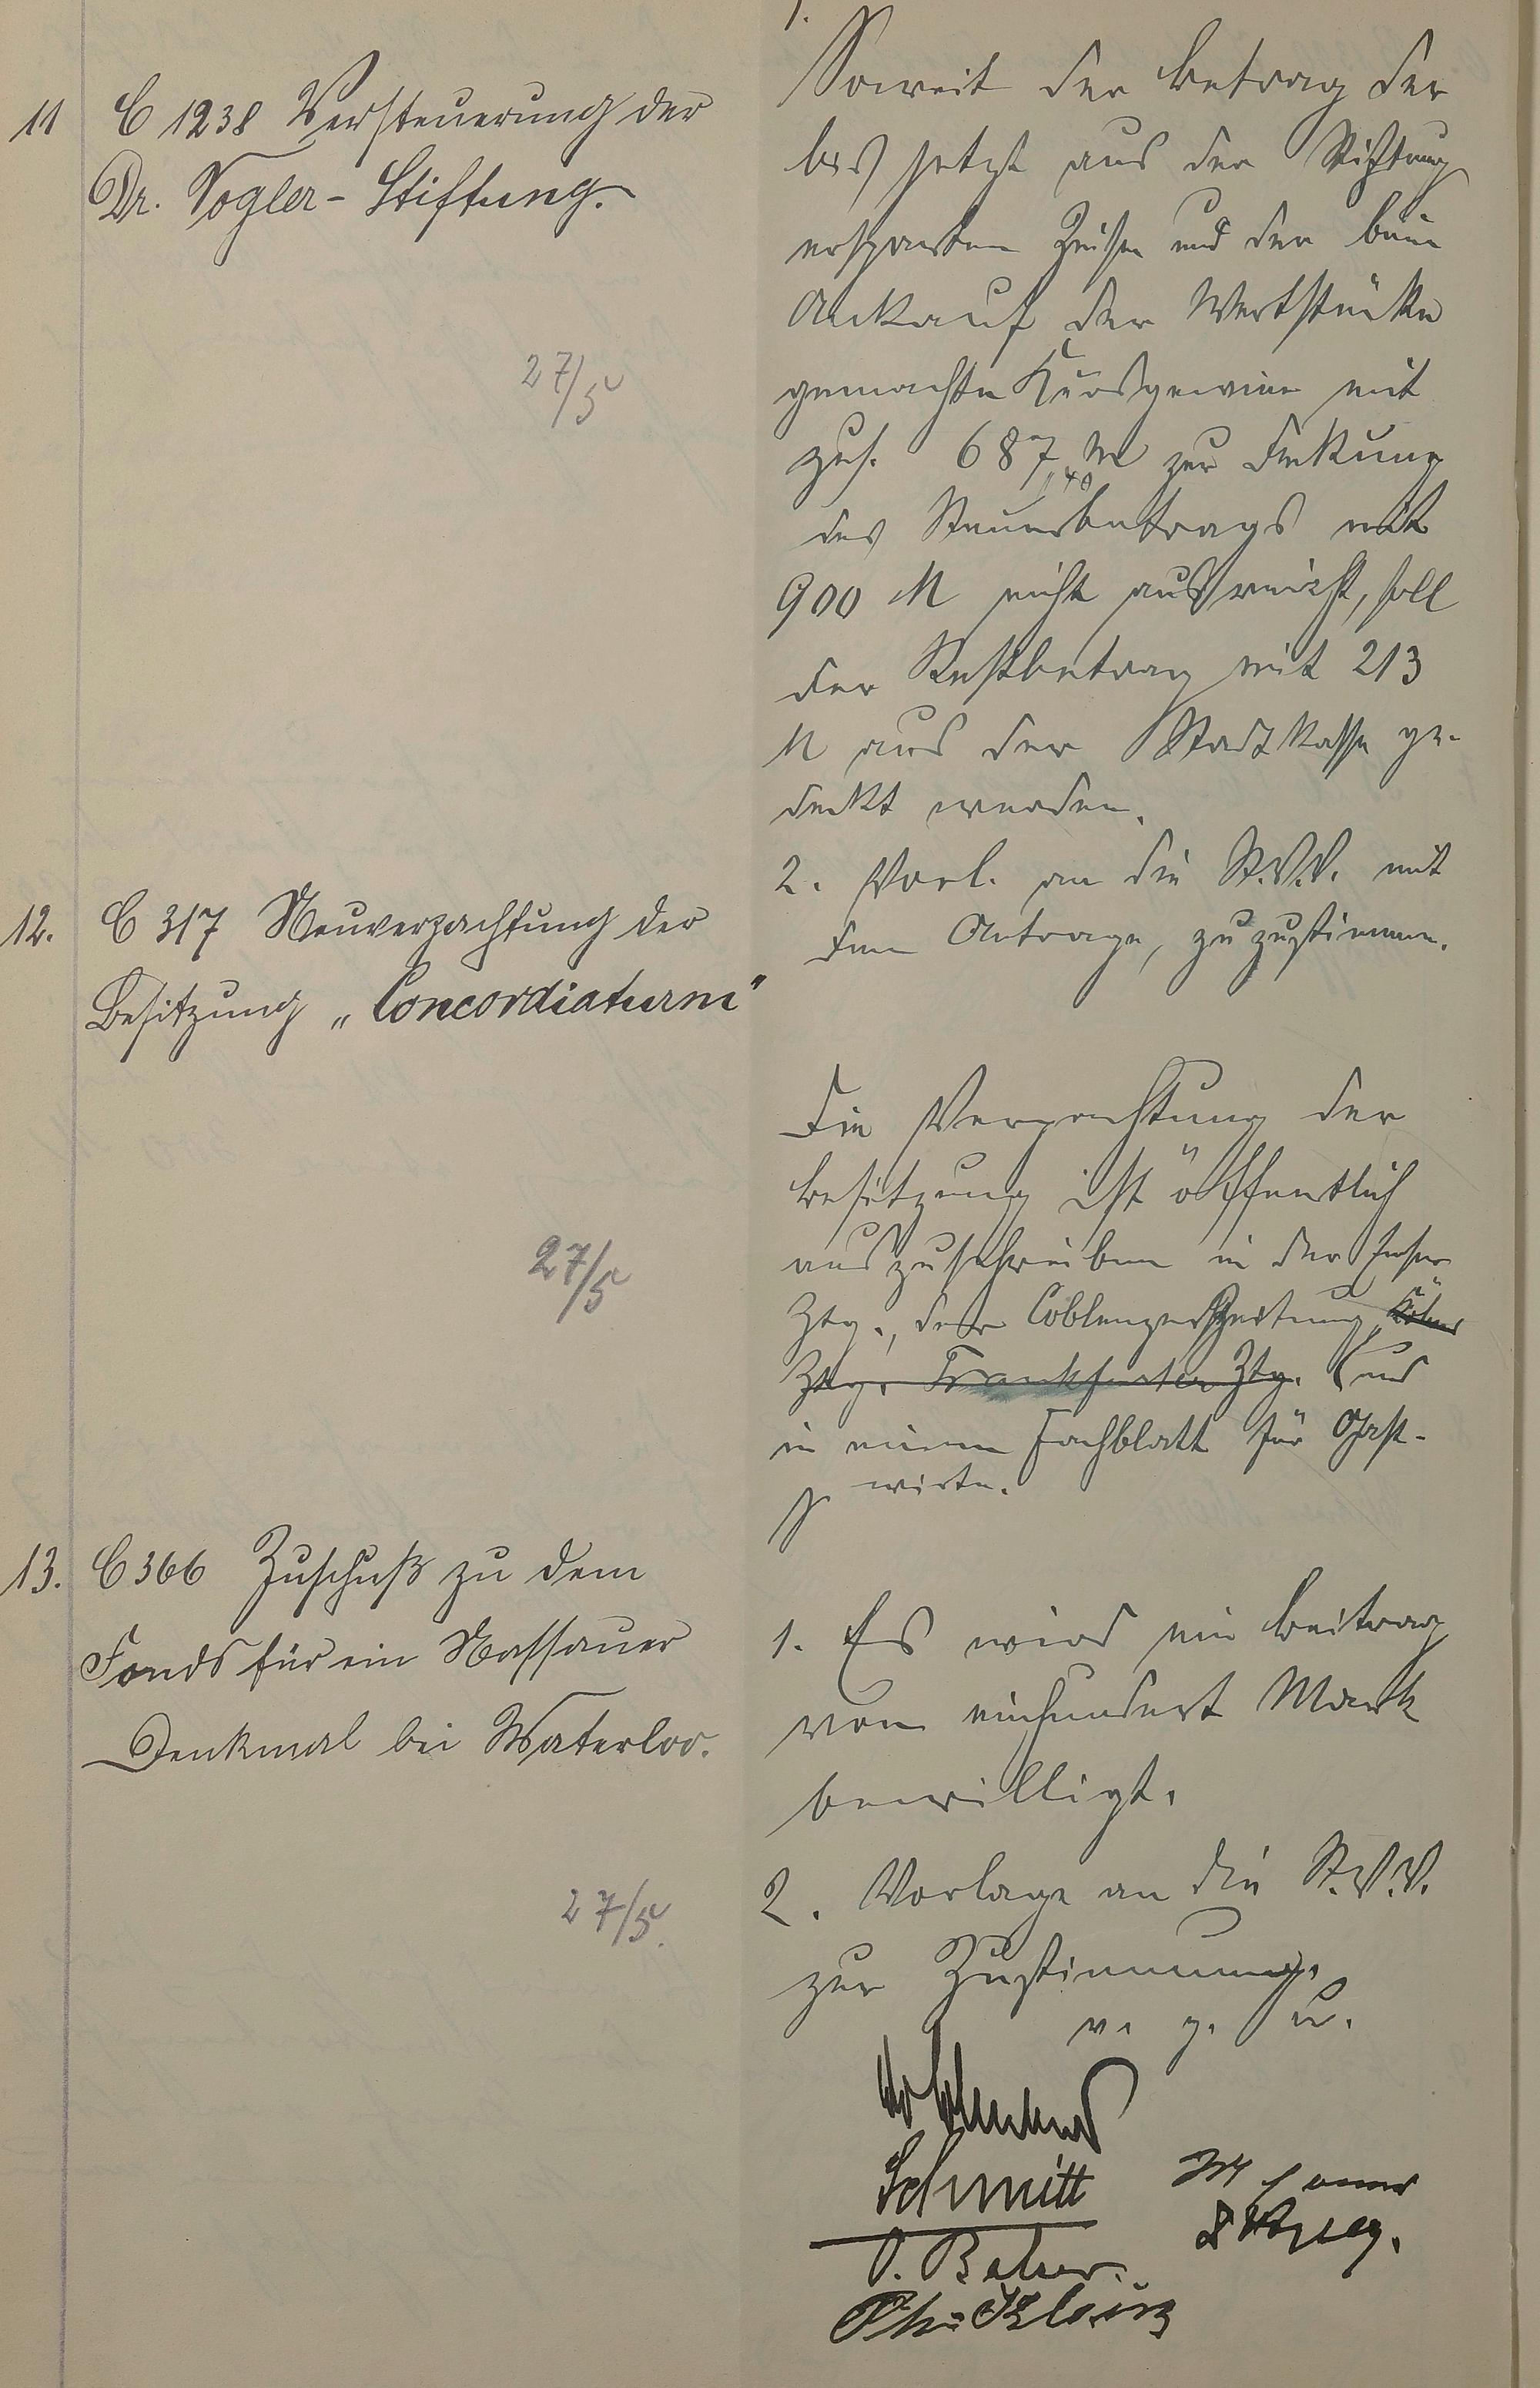 11 C 1238 Versteuerung der
Dr. Vogler-Stiftung.
27/5
1.
Soweit der Betrag der
bis jetzt aus der Stiftung
ersparten Zinsen und der beim
Ankauf der Wertstücke
gemachte Kursgewinn mit
zus. 687,40 M zur Deckung
des Steuerbetrags mit
900 M nicht ausreicht, soll
der Restbetrag mit 213
M aus der Stadtkasse ge-
deckt werden.
2. Vorl. an die St.V.V. mit
dem Antrage, zuzustimmen.
12. C 317 Neuverpachtung der
Besitzung „Concordiaturm"
27/5
Die Verpachtung der
Besitzung ist öffentlich
auszuschreiben in der Emser
Ztg., der Coblenzer Zeitung, Kölner
Ztg. Frankfurter Ztg. und
in einem Fachblatt für Gast-
wirte.
13. C 366 Zuschuß zu dem
Fonds für ein Nassauer
Denkmal bei Waterloo.
27/5.
1. Es wird ein Beitrag
von einhundert Mark
bewilligt.
2. Vorlage an die St.V.V.
zur Zustimmung.
v. g. u.
Schmitt
O. Balzer.